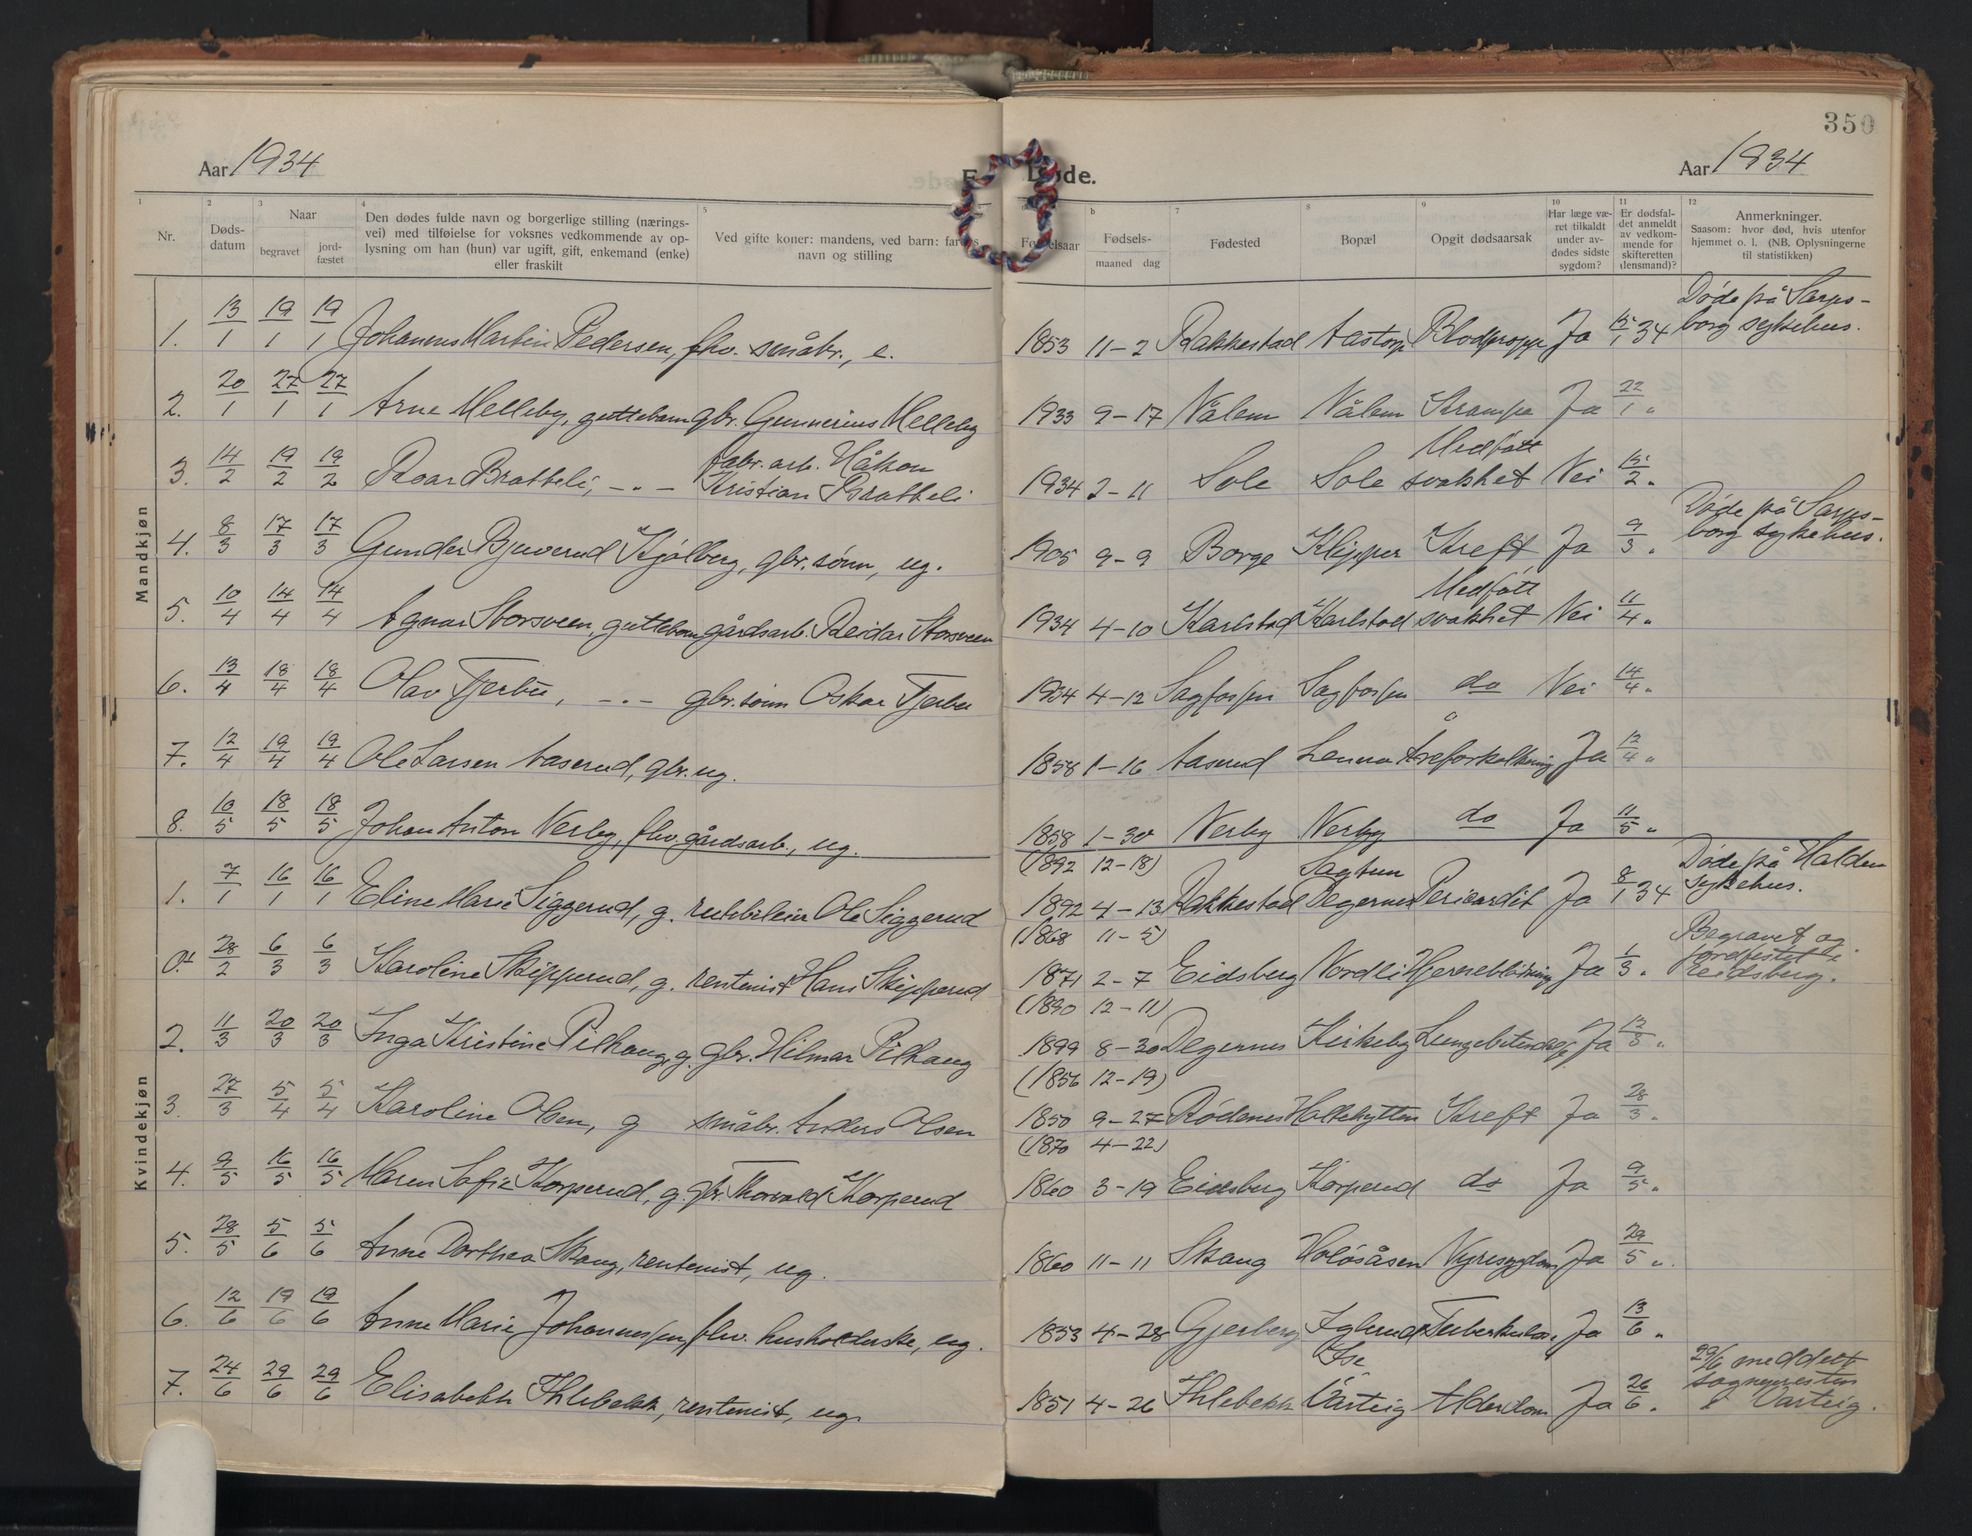 350
Aar 1934
F. Døde.
Aar 1934
1 2 3 4 5 6 7 8 9 10 11 12
Nr.
Dødsdatum
Naar
begravet
jordfæstet
Den dødes fulde navn og borgerlige stilling (næringsvei) med tilføielse for voksnes vedkommende av oplysning om han (hun) var ugift, gift, enkemand (enke) eller fraskilt
Ved gifte koner: mandens, ved barn: farens navn og stilling
Fødselsaar
Fødsels-
maaned dag
Fødested
Bopæl
Opgit dødsaarsak
Har læge været tilkaldt under avdødes sidste sygdom?
Er dødsfaldet anmeldt av vedkommende for skifteretten (lensmand)?
Anmerkninger.
Saasom: hvor død, hvis utenfor hjemmet o. l. (NB. Oplysningerne til statistikken)
Mandkjøn
1. 13/1 19/1 19/1 Johannes Martin Pedersen, fhv. småbr., e. 1853 11-2 Rakkestad Aastorp Blodpropp Ja 15/1 34 Døde på Sarpsborg sykehus.
2. 20/1 27/1 27/1 Arne Melleby, guttebarn gbr. Gunnerius Melleby 1933 9-17 Nålem Nålem Krampe Ja 22/1 "
3. 14/2 19/2 19/2 Roar Bratteli, -"- fabr. arb. Håkon Kristian Bratteli 1934 2-11 Sole Sole Medfött svakhet Nei 15/2 "
4. 8/3 17/3 17/3 Gunder Bjuverud Kjølberg, gbr. sønn, ug. 1905 9-9 Borge Klypper Kreft Ja 9/3 " Døde på Sarpsborg sykehus.
5. 10/4 14/4 14/4 Agnar Storsveen, guttebarn gårdsarb. Reidar Storsveen 1934 4-10 Karlstad Karlstad Medfött svakhet Nei 11/4 "
6. 13/4 18/4 18/4 Olav Tjerbu, -"- gbr. sønn Oskar Tjerbu 1934 4-12 Sagfossen Sagfossen do Nei 14/4 "
7. 12/4 19/4 19/4 Ole Larsen Aaserud, gbr. ug. 1858 1-16 Aaserud Lenna Åreforkalkning Ja 12/4 "
8. 10/5 18/5 18/5 Johan Anton Nerby, fhv. gårdsarb., ug. 1858 1-30 Nerby Nerby do Ja 11/5 "
Kvindekjøn
(1892 12-18)
1. 7/1 16/1 16/1 Eline Marie Siggerud, g. rutebileier Ole Siggerud 1892 4-13 Rakkestad Sagtun Degernes Pericardit Ja 8/1 34 Døde på Halden sykehus.
(1868 11-5)
0. 28/2 6/3 6/3 Karoline Skipperud, g. rentenist Hans Skipperud 1871 2-7 Eidsberg Nordli Hjerneblødning Ja 1/3 " Begravet og jordfestet i Eidsberg.
(1890 12-11)
2. 11/3 20/3 20/3 Inga Kristine Pilhaug, g. gbr. Hilmar Pilhaug 1899 8-30 Degernes Kirkeby Lungebetendelse Ja 12/3 "
(1856 12-19)
3. 27/3 5/4 5/4 Karoline Olsen, g småbr. Anders Olsen 1850 9-27 Rødenes Haltehytten Kreft Ja 28/3 "
(1870 4-22)
4. 9/5 16/5 16/5 Maren Sofie Korperud, g. gbr. Thorvald Korperud 1860 3-19 Eidsberg Korperud do Ja 9/5 "
5. 28/5 5/6 5/6 Anne Dorthea Skaug, rentenist, ug. 1860 11-11 Skaug Holøsåsen Nyresygdom Ja 29/5 "
6. 12/6 19/6 19/6 Anne Marie Johannessen, fhv. husholderske, ug. 1853 4-28 Gjerberg Tuberkulose Ja 13/6 "
7. 24/6 29/6 29/6 Elisabeth Ihlebekk, rentenist, ug. 1851 4-26 Ihlebekk Ise Varteig Alderdom Ja 26/6 " 29/6 meddelt sognepresten i Varteig.